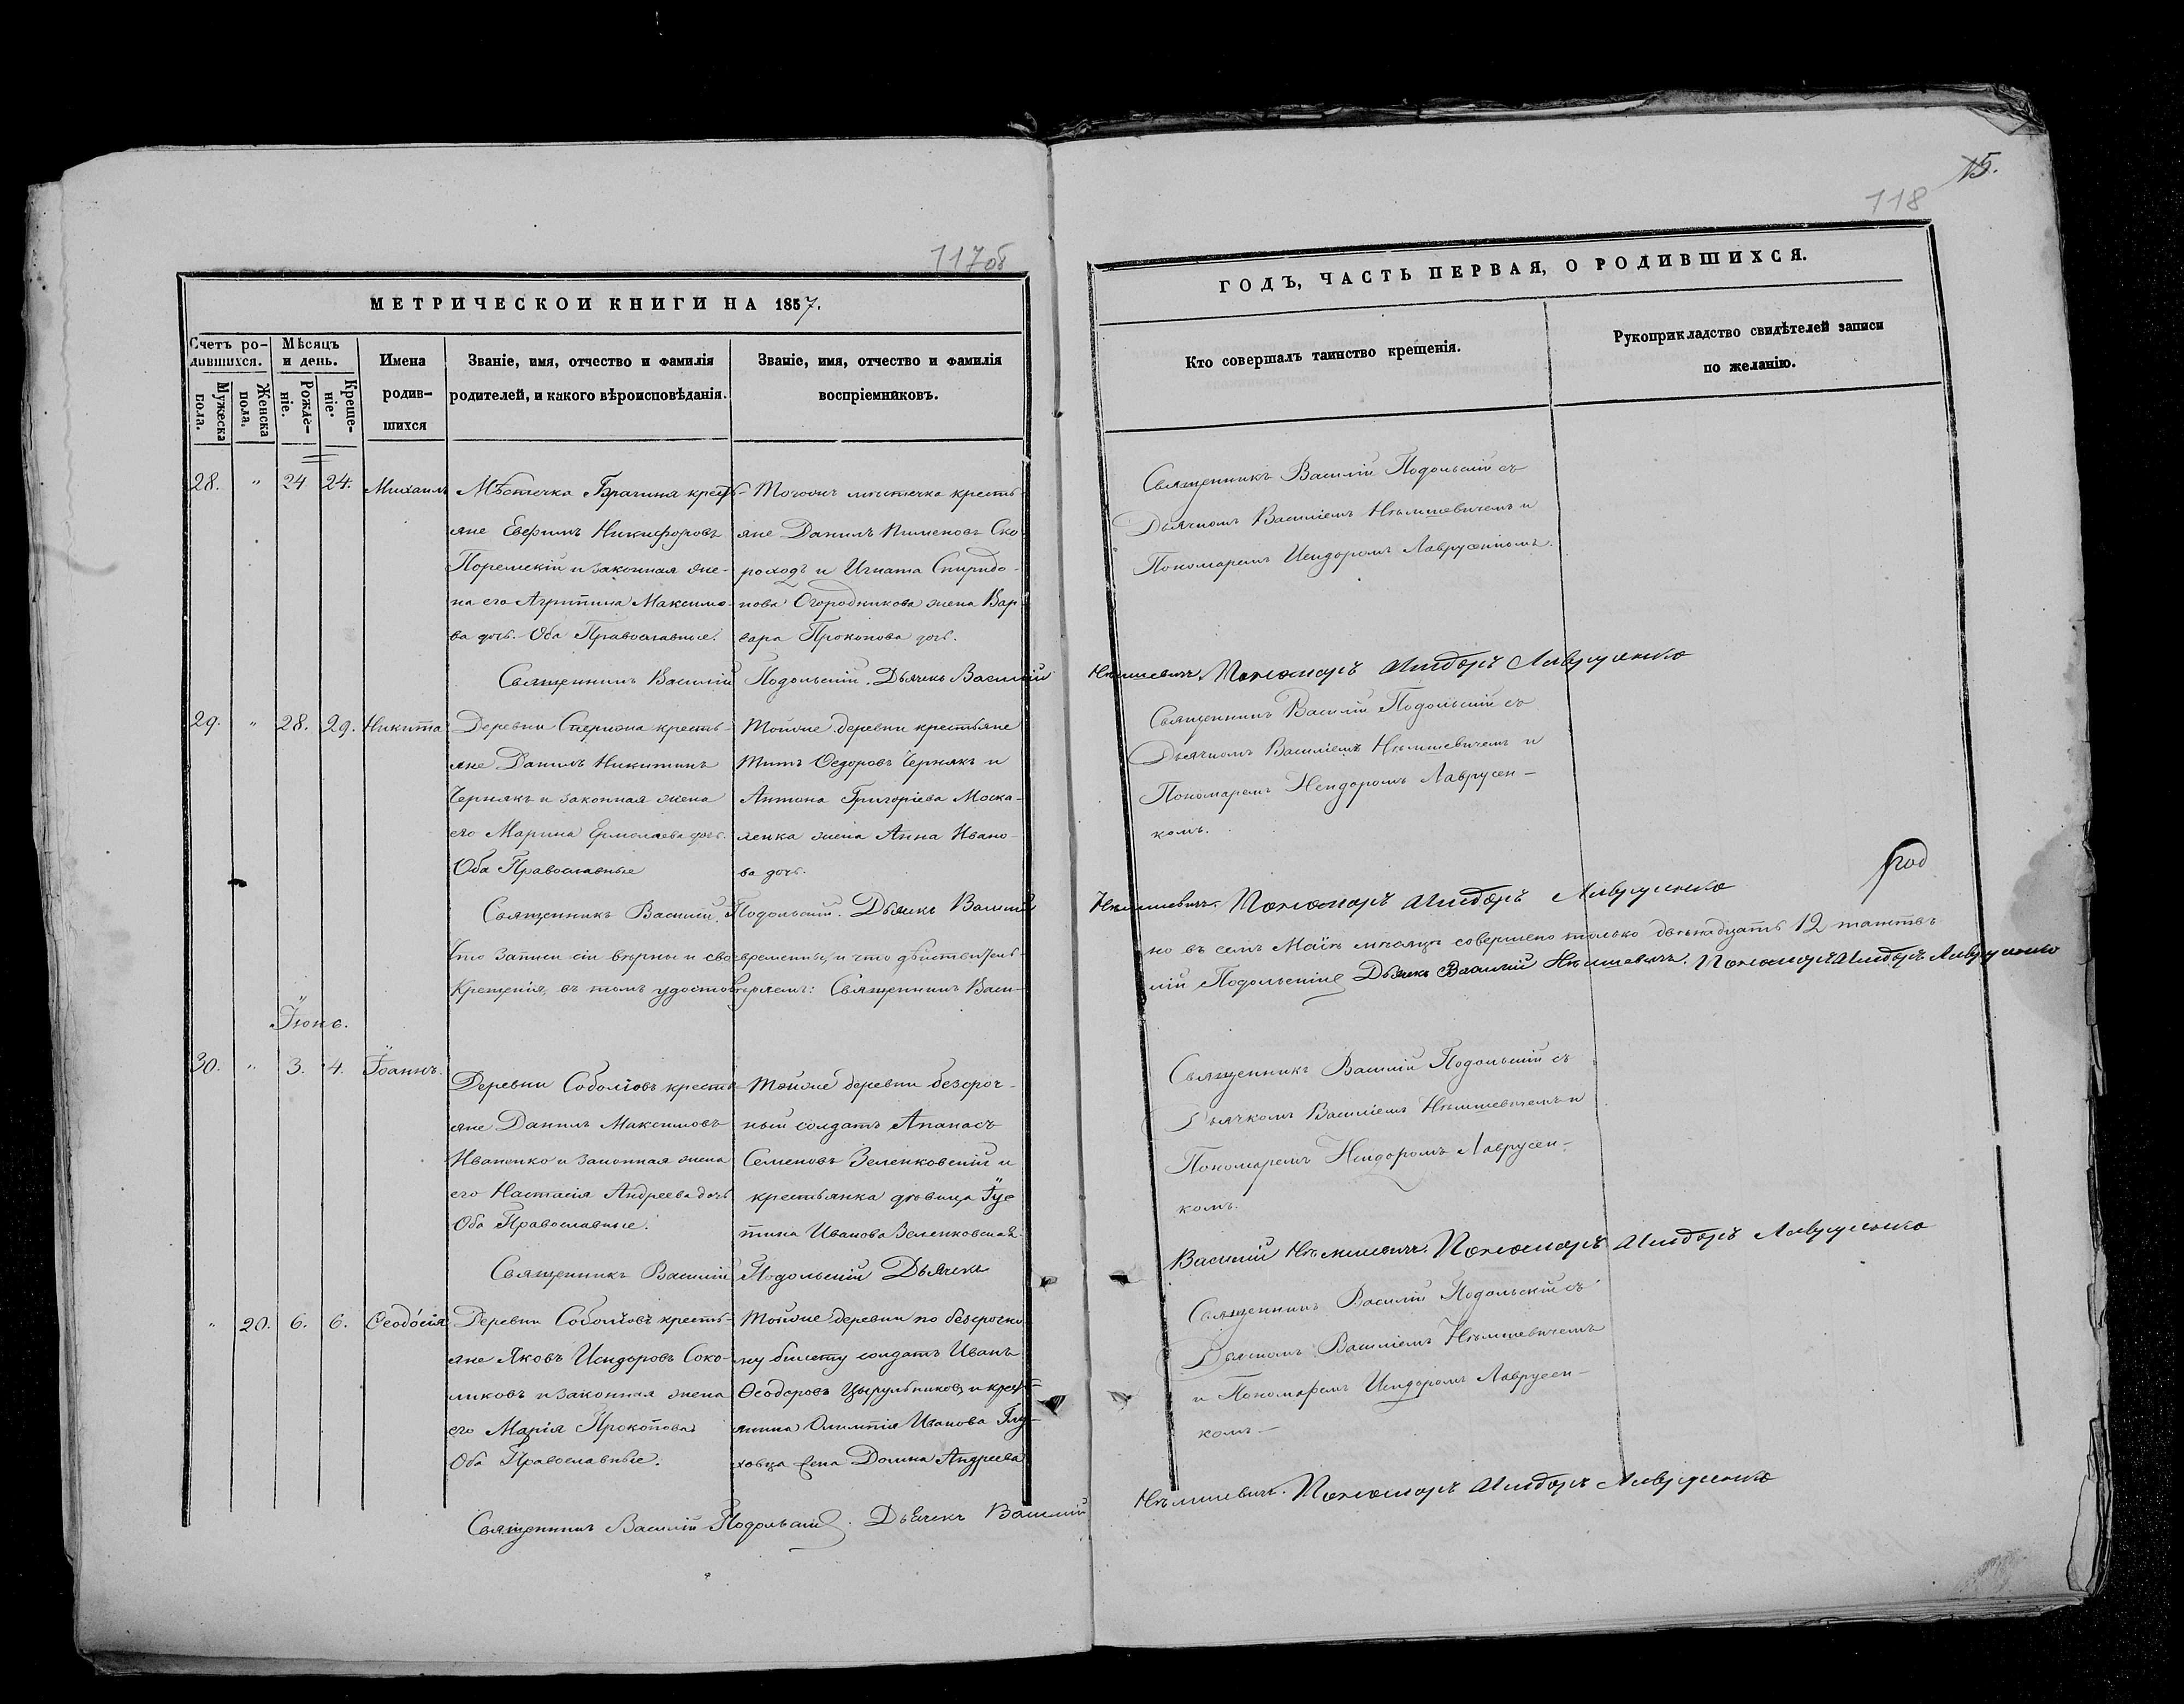 117об
МЕТРИЧЕСКОЙ КНИГИ НА 1857.
Счетъ ро-
дившихся.
Мужеска пола.
Женска пола.
Мѣсяцъ
и день.
Рожде-
ніе.
Креще-
ніе.
Имена
родив-
шихся
Званіе, имя, отчество и фамилія
родителей, и какого вѣроисповѣданія.
Званіе, имя, отчество и фамилія
воспріемниковъ.
28. " 24 24. Михаилъ
Мѣстечка Брагина кресть-
яне Евфимъ Никифоровъ
Поремскій и законная же-
на его Агрипина Максимо-
ва дочь. Оба Православные.
Тогожъ мѣстечка кресть-
яне Данилъ Пименовъ Ско-
роходъ и Игната Спиридо-
нова Огородникова жена Вар-
вара Прокопова дочь.
Священникъ Василій Подольскій. Дьячекъ Василій
29. " 28. 29. Никита
Деревни кресть-
яне Данилъ Никитинъ
Чернякъ и законная жена
его Марина Ермолаева дочь.
Оба Православные
Тойже деревни крестьяне
Титъ Ѳедоровъ Чернякъ и
Антона Григоріева Моска-
ленка жена Анна Ивано-
ва дочь.
Священникъ Василій Подольскій. Дьячекъ Василій
Что записи сіи вѣрны и своевременны, и что дѣйствитель-
Крещенія, въ томъ удостовѣряемъ: Священникъ Васи-
Іюнь.
30. " 3. 4. Іоаннъ.
Деревни Соболіовъ кресть-
яне Данилъ Максимовъ
Иваненко и законная жена
его Настасія Андреева дочь
Оба Православные.
Тойже деревни безсроч-
ный солдатъ Апанасъ
Семеновъ Зеленковскій и
крестьянка дѣвица Іус
тина Иванова Зеленковская.
Священникъ Василій Подольскій Дьячекъ
" 20. 6. 6. Ѳеодосія
Деревни Соболіовъ кресть-
яне Яковъ Исидоровъ Соко-
ликовъ и законная жена
его Марія Прокопова
Оба Православные.
Тойже деревни по безсрочно
му билету солдатъ Иванъ
Ѳеодоровъ Цырульниковъ и крест-
янина Иванова Глу-
ховца жена Домна Андреева
Священникъ Василій Подольскій. Дьячекъ Василій
15.
118
ГОДЪ, ЧАСТЬ ПЕРВАЯ, О РОДИВШИХСЯ.
Кто совершалъ таинство крещенія.
Рукоприкладство свидѣтелей записи
по желанію.
Священникъ Василій Подольскій съ
Дьячкомъ Василіемъ Нѣмшевичемъ и
Пономаремъ Исидоромъ Лаврусенкомъ.
Нѣмшевичъ. Пономарь Исидоръ Лаврусенко
Священникъ Василій Подольскій съ
Дьячкомъ Василіемъ Нѣмшевичемъ и
Пономаремъ Исидоромъ Лаврусен-
комъ.
Нѣмшевичъ. Пономарь Исидоръ Лаврусенко
но въ семъ Маіѣ мѣсяцѣ совершено только двѣнадцать 12 таинствъ
лій Подольскій Дьячекъ Василій Нѣмшевичъ. Пономарь Исидоръ Лаврусенко
Священникъ Василій Подольскій съ
Дьячкомъ Василіемъ Нѣмшевичемъ и
Пономаремъ Исидоромъ Лаврусен-
комъ.
Василій Нѣмшевичъ. Пономарь Исидоръ Лаврусенко
Священникъ Василій Подольскій съ
Дьячкомъ Василіемъ Нѣмшевичемъ
и Пономаремъ Исидоромъ Лаврусен-
комъ.-
Нѣмшевичъ. Пономарь Исидоръ Лаврусенко